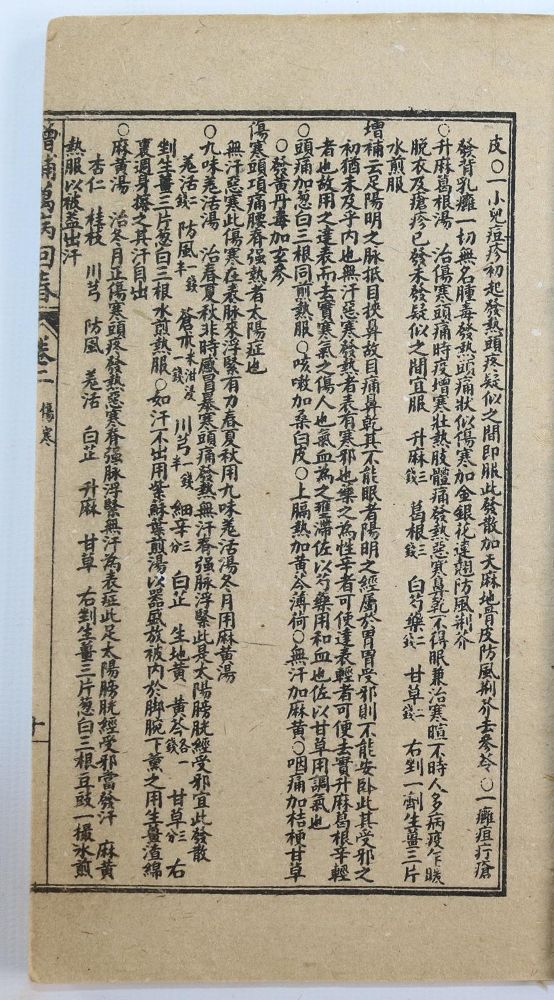 皮○一小兒痘疹初起發熱頭疼疑似之間即服此發散加天麻地骨皮防風荊芥去參苓○一癰疽疔瘡
發背乳癰一切無名腫毒發熱頭痛狀似傷寒加金銀花連翹防風荊芥
○升麻葛根湯 治傷寒頭痛時疫增寒壯熱肢體痛發熱惡寒鼻乾不得眠兼治寒暄不時人多病疫乍暖
脫衣及瘡疹已發未發疑似之間宜服 升麻三錢 葛根三錢 白芍藥二錢 甘草一錢 右剉一劑生薑三片
水煎服
增補云足陽明之脈抵目挾鼻故目痛鼻乾其不能眠者陽明之經屬於胃胃受邪則不能安臥此其受邪之
初猶未及乎內也無汗惡寒發熱者表有寒邪也藥之為性辛者可使達表輕者可使去實升麻葛根辛輕
者也故用之達表而去實寒氣之傷人也氣血為之壅滯佐以芍藥用和血也佐以甘草用調氣也
○頭痛加葱白三根同煎熱服○咳嗽加桑白皮○上膈熱加黃芩薄荷○無汗加麻黃○咽痛加桔梗甘草
○發黃丹毒加玄參
傷寒頭項痛腰脊強熱者太陽症也
無汗惡寒此傷寒在表脈來浮緊有力春夏秋用九味羌活湯冬月用麻黃湯
○九味羌活湯 治春夏秋非時感冒暴寒頭痛發熱無汗脊強脉浮緊此是太陽膀胱經受邪宜此發散
羌活一錢半 防風一錢半 蒼朮米泔浸一錢 川芎一錢半 細辛三分 白芷 生地黃 黃芩各一錢 甘草三分 右
剉生薑三片葱白三根水煎熱服○如汗不出用紫蘇葉煎湯以器盛放被內於脚腕下熏之用生薑渣綿
裹週身擦之其汗自出
○麻黃湯 治冬月正傷寒頭疼發熱惡寒脊強脉浮緊無汗為表症此足太陽膀胱經受邪當發汗 麻黃
杏仁 桂枝 川芎 防風 羌活 白芷 升麻 甘草 右剉生薑三片葱白三根豆豉一撮水煎
熱服以被盖出汗
增補萬病回春 卷二 傷寒
十